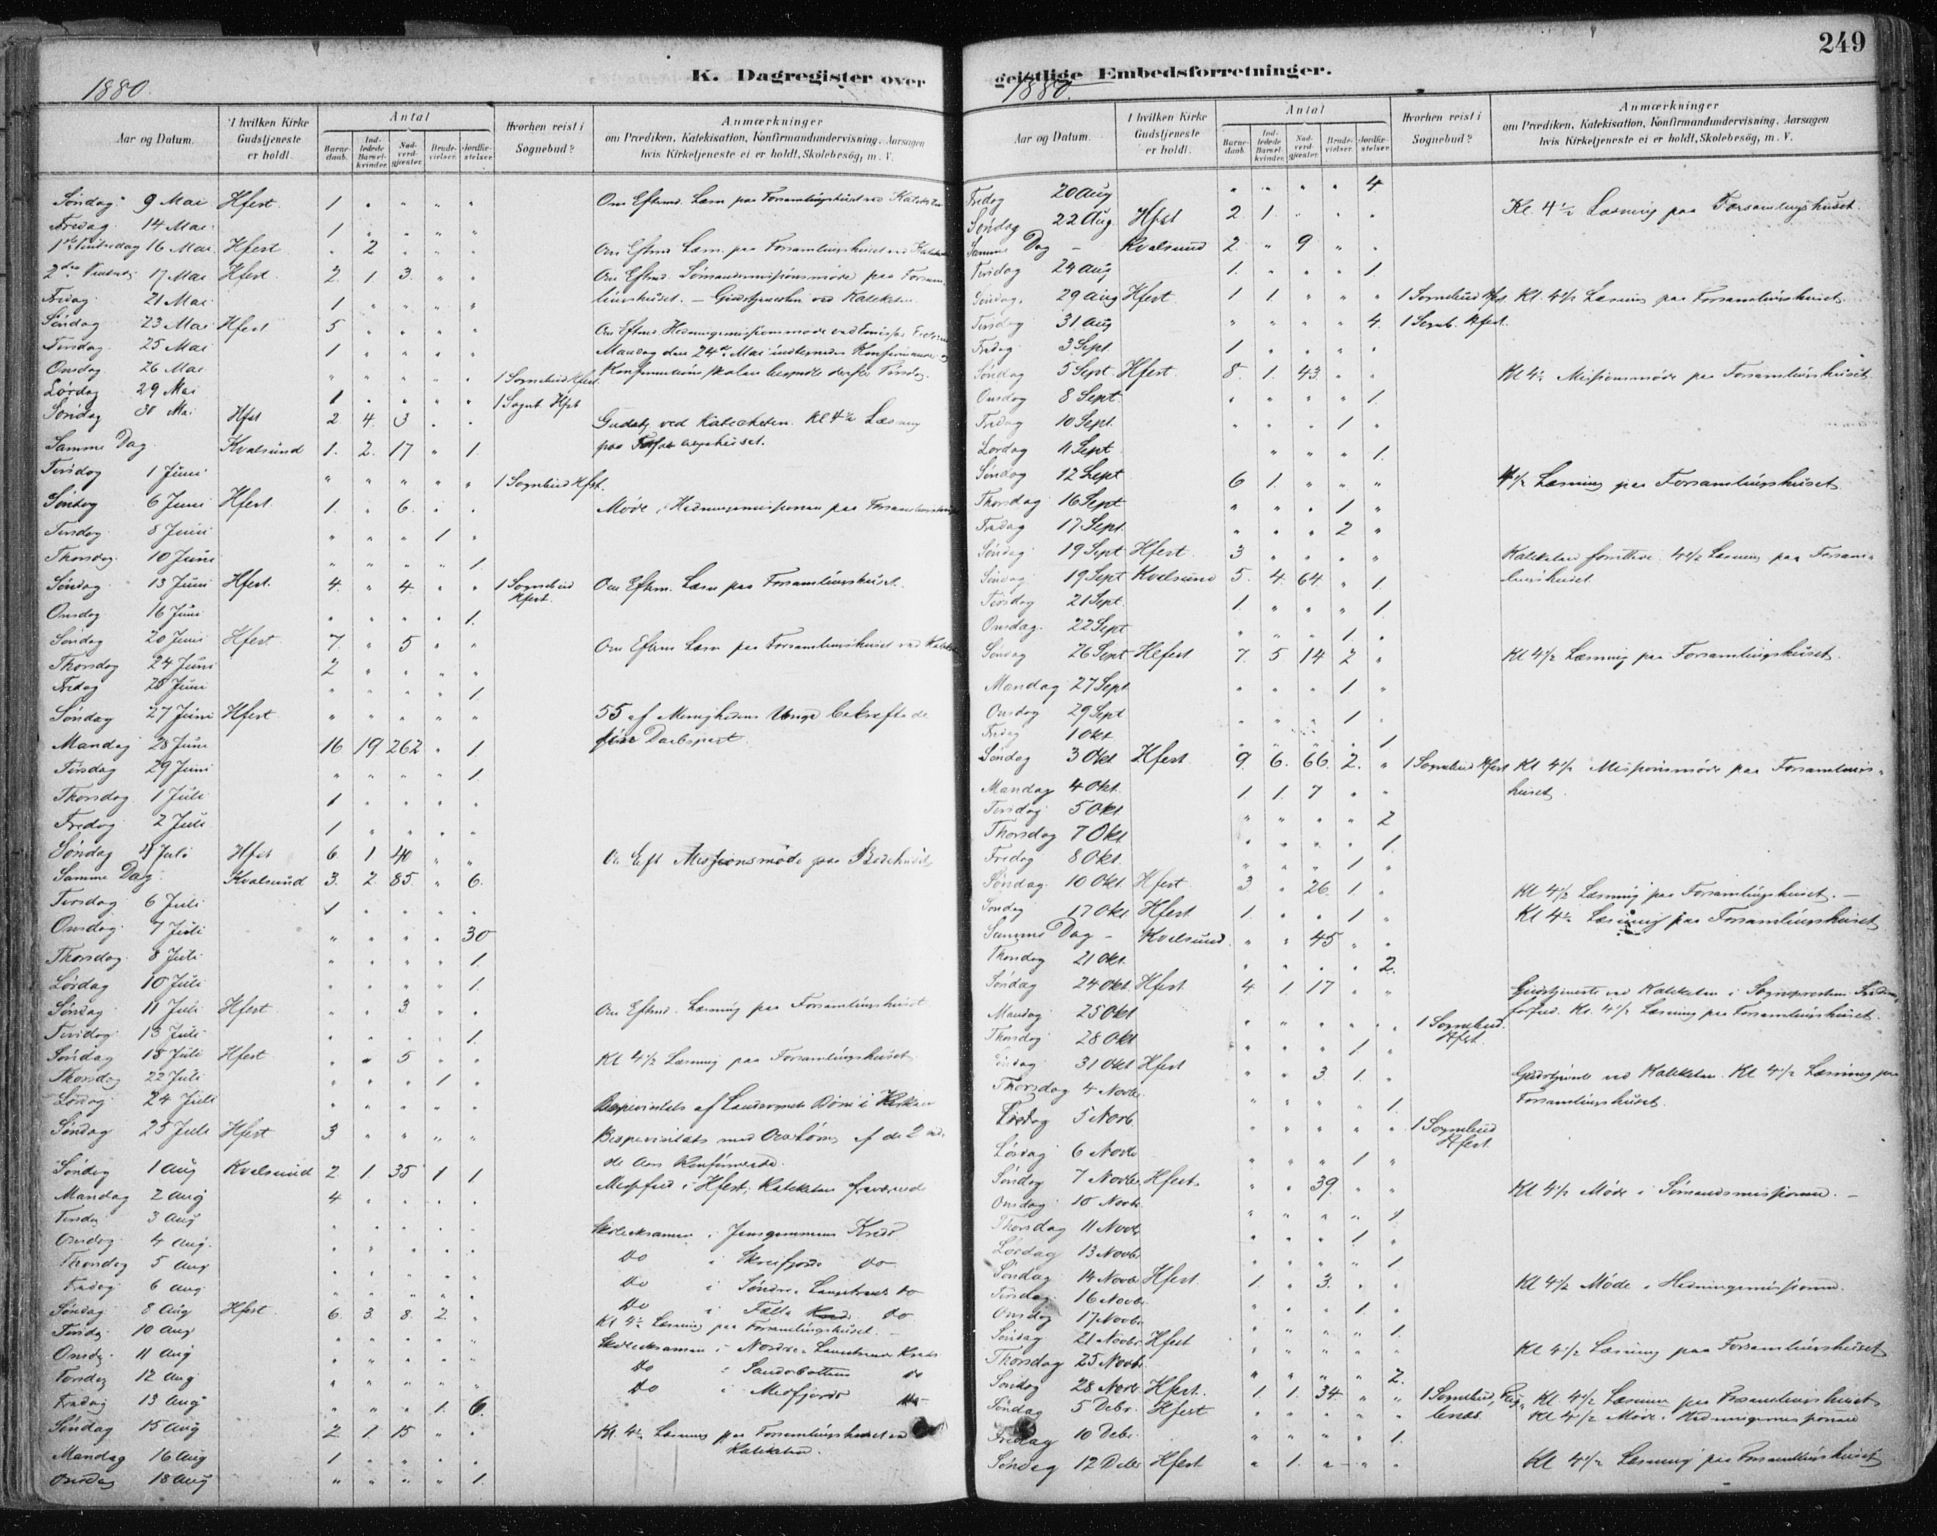 249
K. Dagregister over
1880.
Aar og Datum. | I hvilken Kirke Gudstjeneste er holdt. | Antal | Barnedaab. | Indledede Barselkvinder. | Nadverdgjester. | Brudevielser. | Jordfæstelser. | Hvorhen reist i Sognebud? | Anmærkninger om Prædiken, Katekisation, Konfirmandundervisning, Aarsagen hvis Kirketjeneste ei er holdt, Skolebesøg, m. V.
Søndag 9 Mai Hfest. 1 " " " " Om Efterm. Læsn paa Forsamlingshuset ved Kateketen
Fredag 14 Mai 1 " " " "
1ste Pintsedag 16 Mai Hfest " 2 " " " Om Efterm Læsn. paa Forsamlingshuset ved
2den Pintsedag 17 Mai Hfest. 2. 1 3. " " Om Efterm. Sømandsmissionsmøde paa Forsam-
Fredag 21 Mai 1 " " " " lingshuset. — Gudstjenesten ved Kateketen.
Søndag 23 Mai Hfest 5 " " " " Om Efterm. Hedningemissionsmøde ved
Tirsdag 25 Mai 1 " " " " Mandag den 24de Mai
Onsdag 26 Mai " " " " " 1 Sognebud Hfest.
Lørdag 29 Mai 1 " " " " 1 Sognb. Hfest
Søndag 30 Mai Hfst 2 4 3 " " Gudstj ved Katecheten. Kl 4½ Læsning
Samme Dag Kvalsund 1. 2. 17 " 1. paa
Tirsdag 1 Juni " " " " " 1 Sognebud Hfst.
Søndag 6 Juni Hfest. 1. " 6. " " Møde i Hedningemissionen paa Forsamlingshuset
Tirsdag 8 Juni " " " 1 "
Thorsdag 10 Juni " " " " 1
Søndag 13 Juni Hfest. 4. " 4. " " 1 Sognebud Hfest. Om Efterm. Læsn paa Forsamlingshuset.
Onsdag 16 Juni " " " " 1.
Søndag 20 Juni Hfest. 7. " 5 " " Om Efterm Læsn paa Forsamlingshuset ved
Thorsdag 24 Juni 2 " " " "
Fredag 25 Juni " " " " 1.
Søndag 27 Juni Hfest " " " " " 55 af Menighedens Unge bekræftede
Mandag 28 Juni 16 19 262 " 1 sin Daabspagt.
Tirsdag 29 Juni " " " " 1
Thorsdag 1 Juli 1 " " " "
Fredag 2 Juli 1 " " " "
Søndag 4 Juli Hfest 6 1 40 " " Om Eft Missionsmøde paa Bedehuset
Samme Dag Kvalsund 3. 2 85. " 6.
Tirsdag 6 Juli 1 " " " "
Onsdag 7 Juli " " " " 30
Thorsdag 8 Juli " " " " 1.
Lørdag 10 Juli " " " " 1
Søndag 11 Juli Hfest " " 3 " " Om Efterm. Læsning paa Forsamlingshuset
Tirsdag 13 Juli " " " " 1.
Søndag 18 Juli Hfest " " 5 " " Kl 4½ Læsning paa Forsamlingshuset
Thorsdag 22 Juli " " " 1 "
Lørdag 24 Juli " " " " " Bispevisitats af Landsognets Børn i Kirken
Søndag 25 Juli Hfest 3 " " " " Bispevisitats med af de 2
Søndag 1 Aug Kvalsund 2 1. 35 1 1 Messefald i Hfest, Kateketen fraværende
Mandag 2 Aug 4 " " " "
Tirsdag 3 Aug " " " " " Skoleeksamen i Kreds
Onsdag 4 Aug. " " " " " do i do
Thorsdag 5 Aug " " " " " do i Søndre do
Fredag 6 Aug " " " " " do i do
Søndag 8 Aug Hfest. 6 3. 8. 2 " Kl 4½ Læsning paa Forsamlingshuset. —
Tirsdag 10 Aug " " " " " Skoleeksamen i Nordre Kreds
Onsdag 11 Aug " " " " " do i do
Torsdag 12 Aug " " " " " do i do
Fredag 13 Aug " " " 1. 6.
Søndag 15 Aug 2 1 15 " " Kl. 4½ Læsning paa Forsamlingshuset ved Kateketen.
Mandag 16 Aug 1 " " " "
Onsdag 18 Aug " " " " 1.
geistlige Embedsforretninger.
1880.
Aar og Datum. | I hvilken Kirke Gudstjeneste er holdt. | Antal | Barnedaab. | Indledede Barselkvinder. | Nadverdgjester. | Brudevielser. | Jordfæstelser. | Hvorhen reist i Sognebud? | Anmærkninger om Prædiken, Katekisation, Konfirmandundervisning, Aarsagen hvis Kirketjeneste ei er holdt, Skolebesøg, m. V.
Fredag 20 Aug " " " " 4
Søndag 22 Aug. Hfest 2 1 " " " Kl. 4½ Læsning paa Forsamlingshuset.
Samme Dag - Kvalsund 2 " 9 " "
Tirsdag 24 Aug 1. " " " 1.
Søndag. 29 Aug Hfest. 1 1 " " " 1 Sognebud Hfst. Kl. 4½ Læsning paa Forsamlingshuset.
Tirsdag 31 Aug " " " " 4. 1 Sognb. Hfest.
Fredag 3 Sept. 1 " " " "
Søndag 5 Sept Hfest. 8. 1. 43. " " Kl 4½ Missionsmøde paa Forsamlingshuset
Onsdag 8 Sept " " " " 1.
Fredag 10 Sept. " " " 1 "
Lørdag 11 Sept " " " " 1.
Søndag 12 Sept 6 1. " " " 4½ Læsning paa Forsamlingshuset
Thorsdag 16 Sept " " " 1 "
Fredag 17 Sept. " " " 2 "
Søndag 19 Sept Hfest. 3 " " " " Kateketen forrettede. 4½ Læsning paa Forsam-
Søndag 19 Sept Kvalsund 5. 4. 64. " 1. lingshuset.
Tirsdag 21 Sept. 1. " " " 1
Onsdag. 22 Sept " " " 1. "
Søndag 26 Sept Hfest 7. 5 14 2 " Kl 4½ Læsning paa Forsamlingshuset.
Mandag 27 Sept " " " 1 "
Onsdag 29 Sept " " " 1 "
Fredag 1 Okt " " " " 1
Søndag 3 Okt Hfest. 9. 6. 66. 2. " 1 Sognebud Hfest Kl 4½ Missionsmøde paa Forsamlings-
Mandag 4 Okt. 1 1. 7 " " huset.
Tirsdag 5 Okt. " " " " 2
Thorsdag 7 Okt. " " " " 1.
Fredag 8 Okt. " " " 1 "
Søndag 10 Okt Hfest. 3. " 26. 1. " Kl 4½ Læsning paa Forsamlingshuset. —
Søndag 17 Okt Hfest. 1. " " 1 " Kl 4½ Læsning paa Forsamlingshuset
Samme Dag - Kvalsund. " " 45 " "
Thorsdag 21 Okt. " " " " 2.
Søndag 24 Okt. Hfest 4. 1. 17 " " Gudstjeneste ved Kateketen i Sognepræstens
Mandag 25 Okt " " " " " 1 Sognebud. Hfest. forfald. Kl. 4½ Læsning paa Forsamlingshuset.
Thorsdag 28 Okt " " " 1 "
Søndag 31 Okt Hfest " " 3. 1. " Gudstjeneste ved Kateketen. Kl 4½ Læsning paa
Thorsdag 4 Novbr. " " " " 1. Forsamlingshuset.
Fredag 5 Novb. " " " " " 1 Sognebud Hfest.
Lørdag 6 Novbr " " " 1 "
Søndag 7 Novbr. Hfest. " " 39. " " Kl 4½ Møde i Sømandsmissionen. —
Onsdag 10 Novbr. " " " " 1.
Thorsdag 11 Novbr " " " 1 "
Lørdag 13 Novbr " " " " 1
Søndag 14 Novbr Hfest. 1. " 3. " " Kl 4½ Møde i Hedningemissionen.
Tirsdag 16 Novbr. " " " 1. "
Onsdag 17 Novbr. " " " " 1.
Søndag 21 Novbr Hfest " " " " " Kl 4½ Læsning paa Forsamlingshuset.
Thorsdag 25 Novbr. " " " " 2.
Søndag 28 Novbr Hfest. 1 1. 34. " " 1 Sognebud, Kl 4½ Læsning paa Forsamlingshuset
Søndag 5 Debr. Hfest " " " " " Kl 4½ Møde i Hedningemissionen
Fredag 10 Debr. " " " " 1.
Søndag 12 Debr Hfest " 1. " " " Kl 4½ Læsning paa Forsamlingshuset